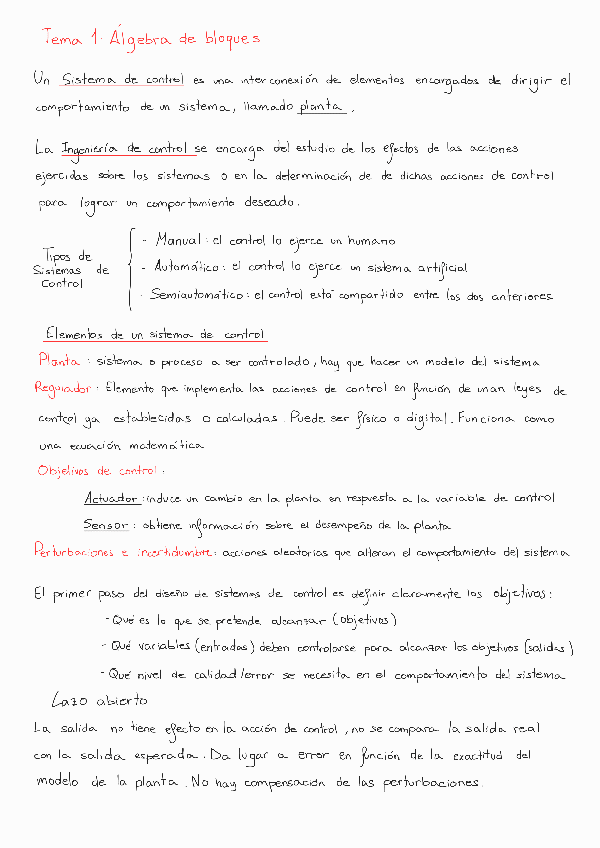 Tema 1. Álgebra de bloques
Un Sistema de control es una interconexión de elementos encargados de dirigir el
comportamiento de un sistema, llamado planta.
La Ingeniería de control se encarga del estudio de los efectos de las acciones
ejercidas sobre los sistemas o en la determinación de de dichas acciones de control
para lograr un comportamiento deseado.
Tipos de
Sistemas de
Control
- Manual: el control lo ejerce un humano
- Automático: el control lo ejerce un sistema artificial
- Semiautomático: el control está compartido entre los dos anteriores
Elementos de un sistema de control
Planta: sistema o proceso a ser controlado, hay que hacer un modelo del sistema
Regulador: Elemento que implementa las acciones de control en función de unan leyes de
control ya establecidas o calculadas. Puede ser físico o digital. Funciona como
una ecuación matemática
Objetivos de control:
Actuador: induce un cambio en la planta en respuesta a la variable de control
Sensor: obtiene información sobre el desempeño de la planta
Perturbaciones e incertidumbre: acciones aleatorias que alteran el comportamiento del sistema
El primer paso del diseño de sistemas de control es definir claramente los objetivos:
- Qué es lo que se pretende alcanzar (objetivos)
- Qué variables (entradas) deben controlarse para alcanzar los objetivos (salidas)
- Qué nivel de calidad/error se necesita en el comportamiento del sistema
Lazo abierto
La salida no tiene efecto en la acción de control, no se compara la salida real
con la salida esperada. Da lugar a error en función de la exactitud del
modelo de la planta. No hay compensación de las perturbaciones.